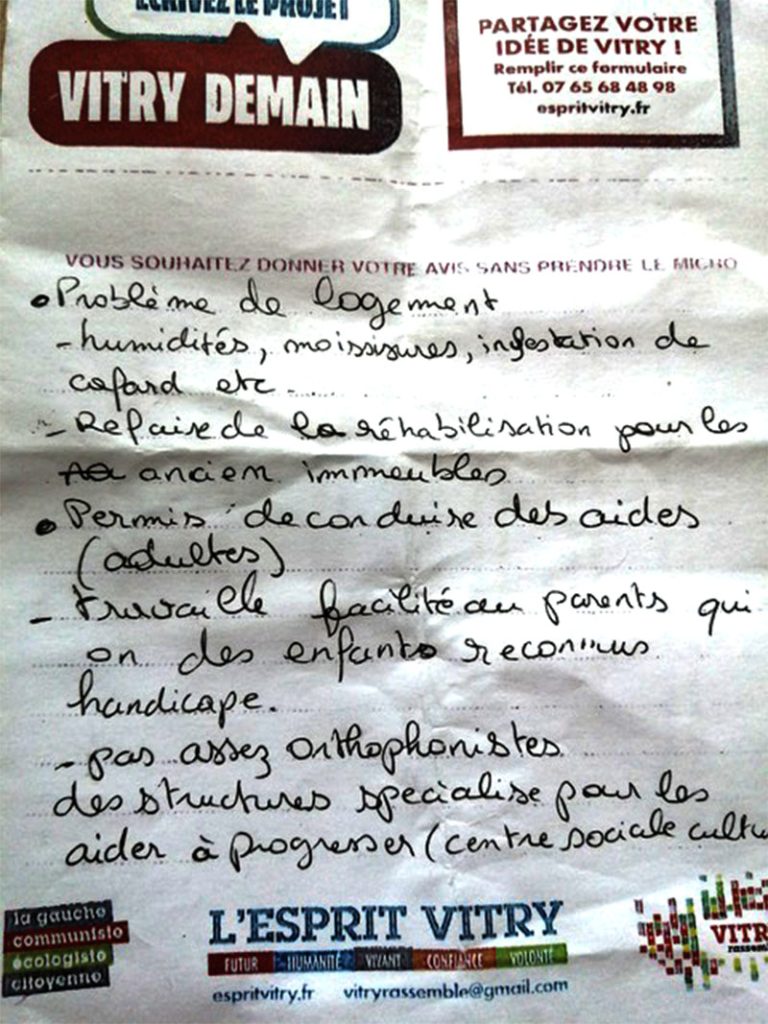 ÉCRIVEZ LE PROJET
VITRY DEMAIN
PARTAGEZ VOTRE
IDÉE DE VITRY !
Remplir ce formulaire
Tél. 07 65 68 48 98
espritvitry.fr
VOUS SOUHAITEZ DONNER VOTRE AVIS SANS PRENDRE LE MICRO
• Problème de logement
- humidités, moissisures, infestation de
cafard etc.
- Refaire de la réhabilisation pour les
ancien immeubles
• Permis de conduire des aides
(adultes)
- travaille facilité au parents qui
on des enfants reconnus
handicape.
- pas assez orthophonistes
des structures specialise pour les
aider à progresser (centre sociale cultu
la gauche
communiste
écologiste
citoyenne
L'ESPRIT VITRY
FUTUR HUMANITÉ VIVANT CONFIANCE VOLONTÉ
espritvitry.fr vitryrassemble@gmail.com
VITR
rassem